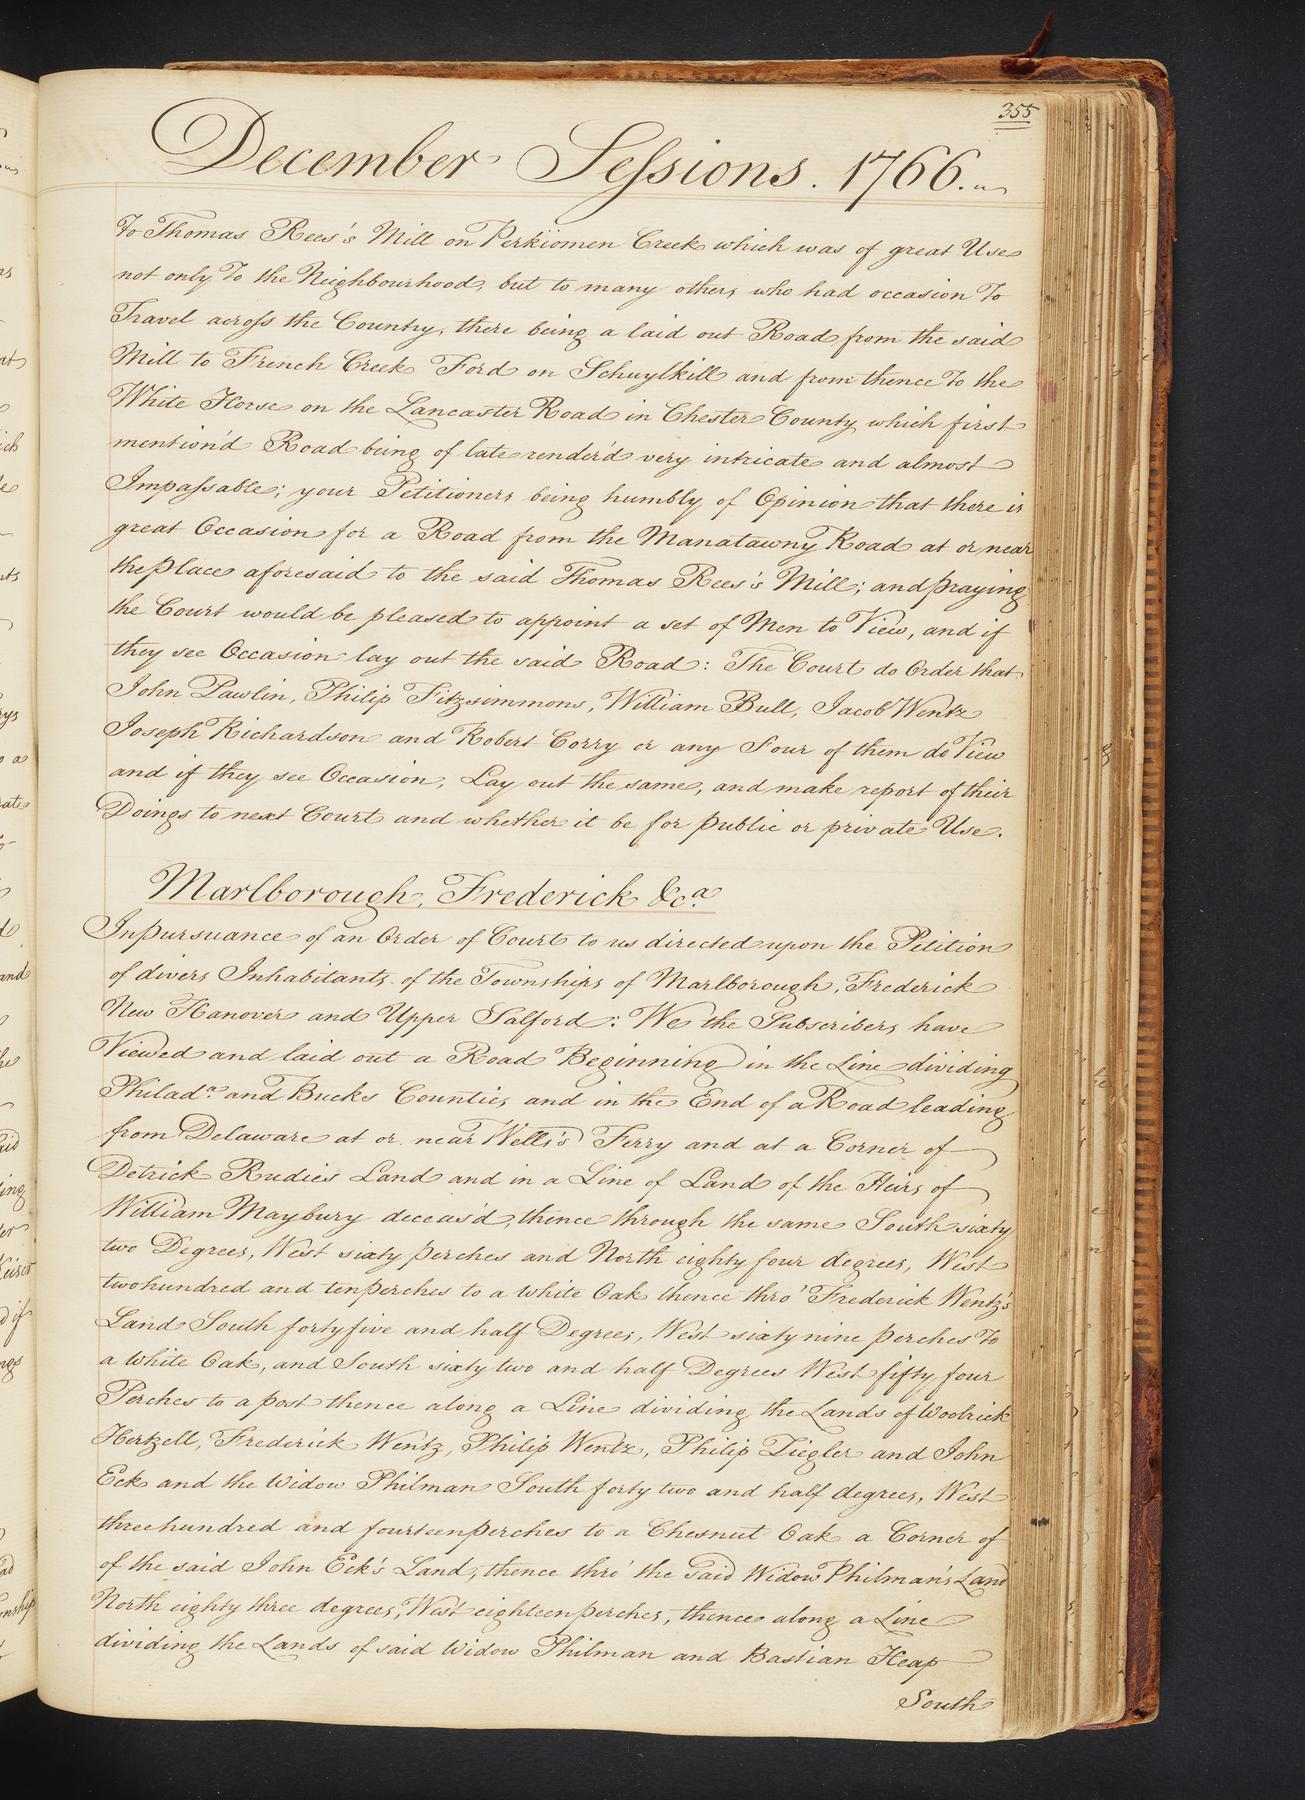 355
December Sessions. 1766.
To Thomas Rees's Mill on Perkiomen Creek which was of great Use
not only To the Neighbourhood, but to many others who had occasion To
Travel across the Country, there being a laid out Road from the said
Mill to French Creek Ford on Schuylkill and from thence To the
White Horse on the Lancaster Road in Chester County which first
mention'd Road being of late render'd very intricate and almost
Impassable; your Petitioners being humbly of Opinion that there is
great Occasion for a Road from the Manatawny Road at or near
the place aforesaid to the said Thomas Rees's Mill; and praying
the Court would be pleased to appoint a set of Men to View, and if
they see Occasion lay out the said Road: The Court do Order that
John Pawlin, Philip Fitzsimmons, William Bull, Jacob Wentz
Joseph Richardson and Robert Corry or any Four of them do View
and if they see Occasion, Lay out the same, and make report of their
Doings to next Court and whether it be for public or private Use.
Marlborough, Frederick &c.a
In pursuance of an Order of Court to us directed upon the Petition
of divers Inhabitants of the Townships of Marlborough, Frederick
New Hanover and Upper Salford: We the Subscribers have
Viewed and laid out a Road Beginning in the Line dividing
Philad.a and Bucks Counties and in the End of a Road leading
from Delaware at or near Wells's Ferry and at a Corner of
Detrick Rudies Land and in a Line of Land of the Heirs of
William Maybury deceas'd, thence through the same South sixty
two Degrees, West sixty perches and North eighty four degrees, West
two hundred and ten perches to a white Oak thence thro' Frederick Wentz's
Land South forty five and half Degrees, West sixty nine perches To
a white Oak, and South sixty two and half Degrees West fifty four
Perches to a post thence along a Line dividing the Lands of Woolrick
Hertzell, Frederick Wentz, Philip Wentz, Philip Ziegler and John
Eck and the Widow Philman South forty two and half degrees, West
three hundred and fourteen perches to a Chesnut Oak a Corner of
of the said John Eck's Land, thence thro' the said Widow Philman's Land
North eighty three degrees, West eighteen perches, thence along a Line
dividing the Lands of said Widow Philman and Bastian Heap
South